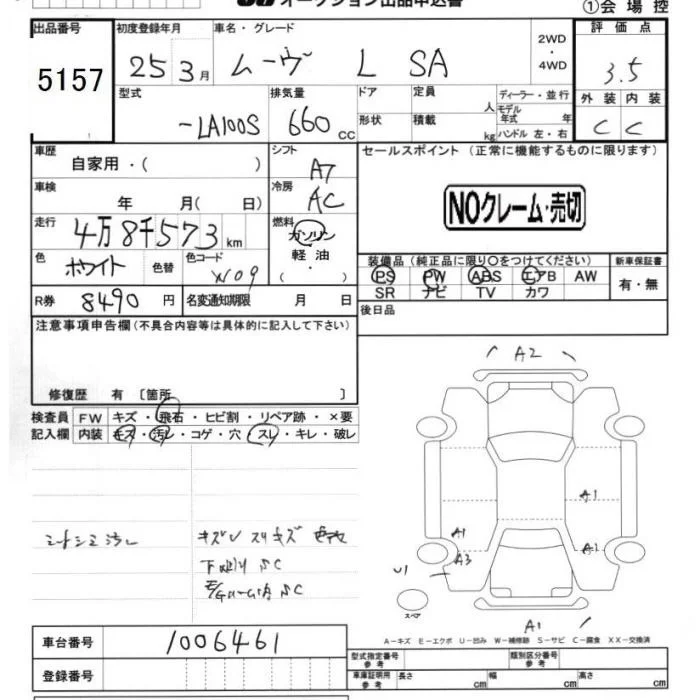 オークション出品申込書
①会場控
出品番号 初度登録年月 車名・グレード 評価点
5157 25 3月 ムーヴ L SA 2WD・4WD 3.5
型式 排気量 ドア 定員 人 ディーラー・並行 外装 内装
-LA100S 660cc 形状 積載 kg モデル年式 年 ハンドル 左・右 C C
車歴 シフト セールスポイント (正常に機能するものに限ります)
自家用・( ) A7
車検 冷房
年 月( 日) AC NOクレーム・売切
走行 4万8千573km 燃料 ガソリン 軽油・( )
色 ホワイト 色替 色コード W09 装備品(純正品に限り○をつけてください) 新車保証書
PS PW ABS エアB AW 有・無
SR ナビ TV カワ
R券 8490円 名変通知期限 月 日 後日品
注意事項申告欄(不具合内容等は具体的に記入して下さい)
修復歴 有 [箇所 ]
A2
検査員 FW キズ・飛石・ヒビ割・リペア跡・×要
記入欄 内装 キズ・汚レ・コゲ・穴・スレ・キレ・破レ
A1
A1 A2
A3
シートシミ汚レ
キズU スリキズ
下廻り SC
SC
U1
スペア
A1
A-キズ E-エクボ U-凹み W-補修跡 S-サビ C-腐食 XX-交換済
車台番号 1006461
型式指定番号 参考 類別区分番号 参考
登録番号 車庫証明用 参考 長さ cm 幅 cm 高さ cm